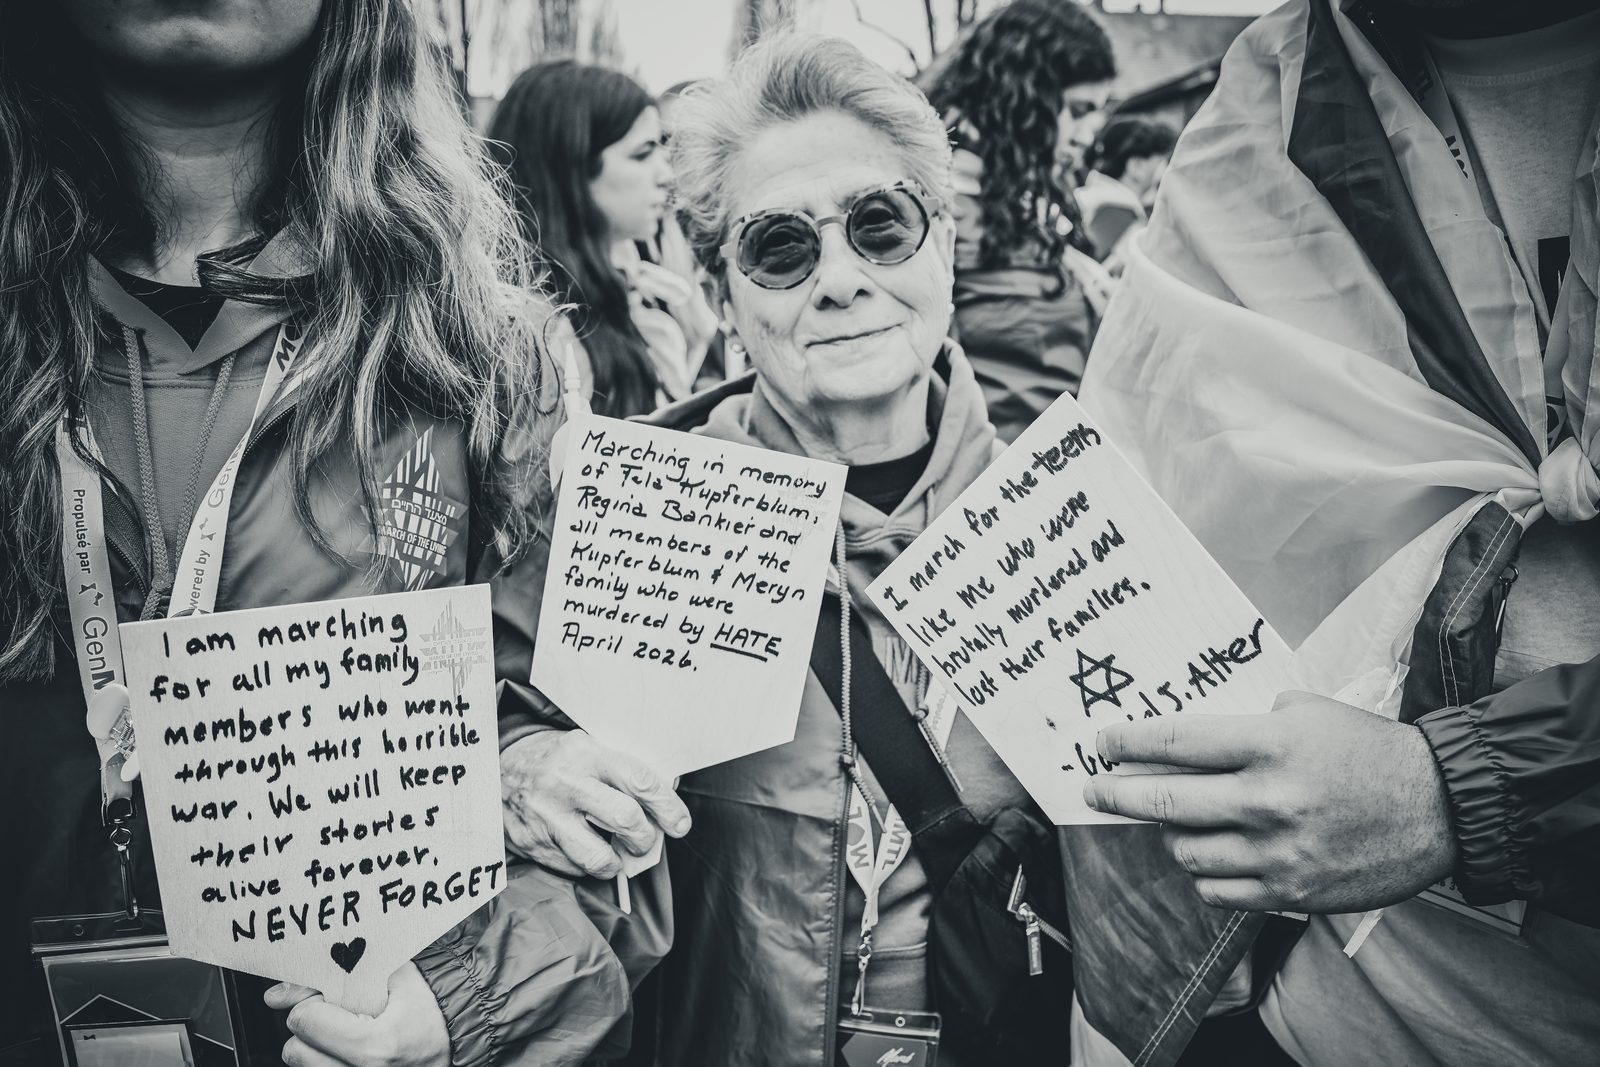 I am marching
for all my family
members who went
through this horrible
war. We will keep
their stories
alive forever.
NEVER FORGET
Marching in memory
of Fela Kupferblum,
Regina Bankier and
all members of the
Kupferblum & Meryn
family who were
murdered by HATE
April 2026.
I march for the teens
like me who were
brutally murdered and
lost their families.
J. Alter
מצעד החיים
MARCH OF THE LIVING
Propulsé par
GenM
Powered by
Gen
MTL